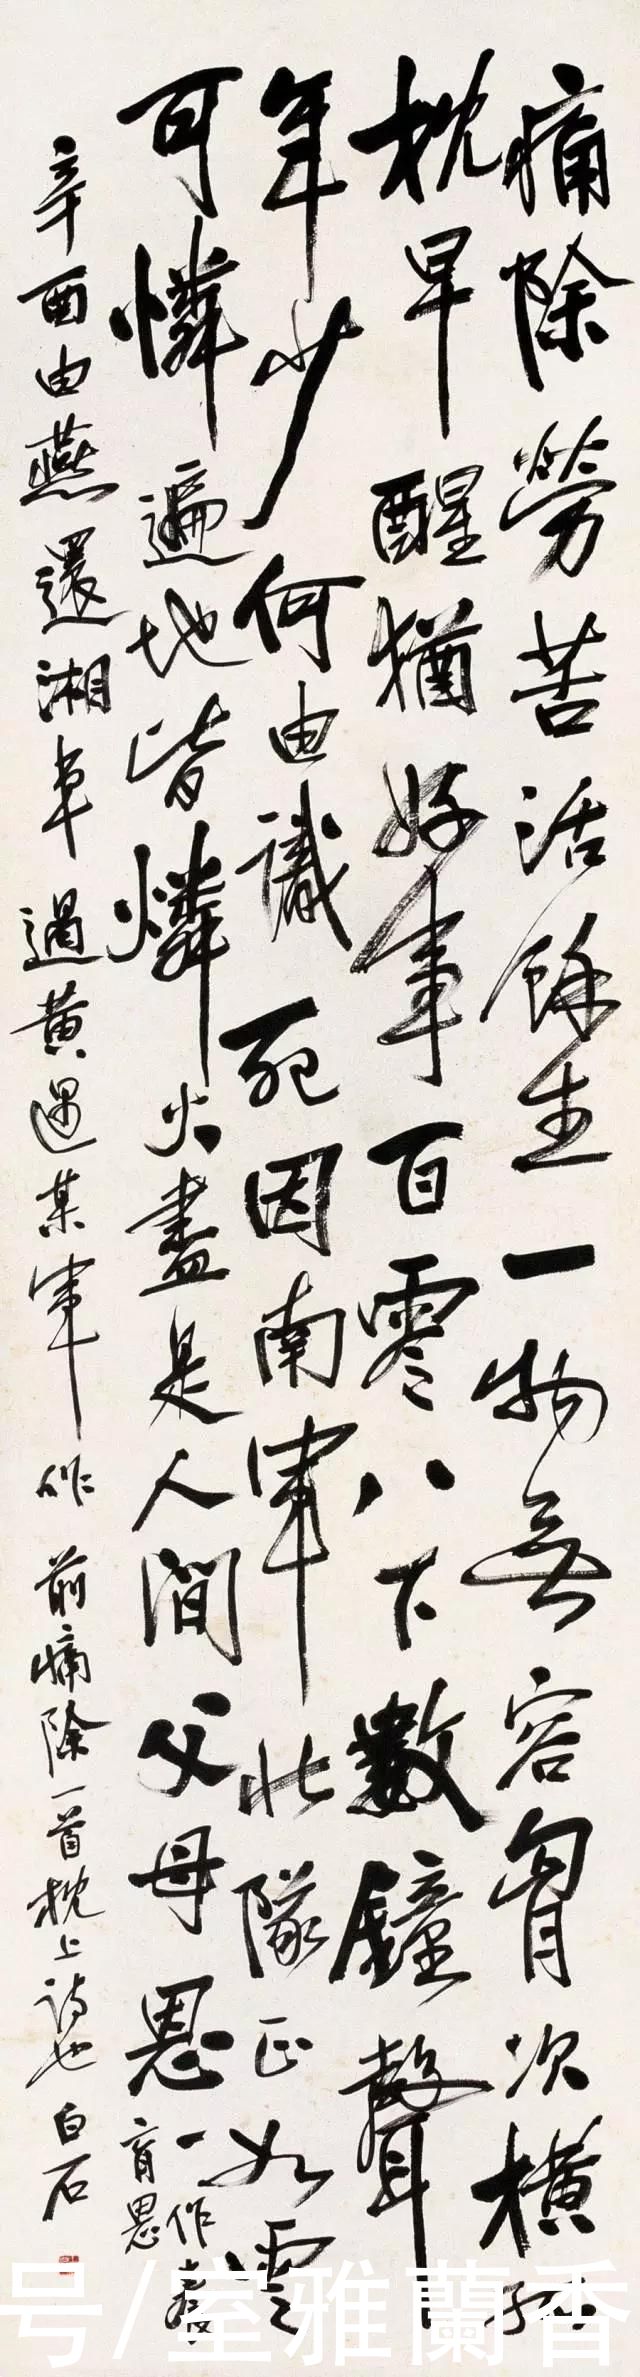 痛除勞苦活餘生一物無容胷次橫孤
枕早醒猶好事百零八下數鐘聲
年少何由識死因南軍北隊正如雲
可憐遍地皆燐火盡是人間父母恩
一作養
育恩
辛酉由燕還湘車過黃遇某軍作前痛除一首枕上詩也白石
号/室雅蘭香